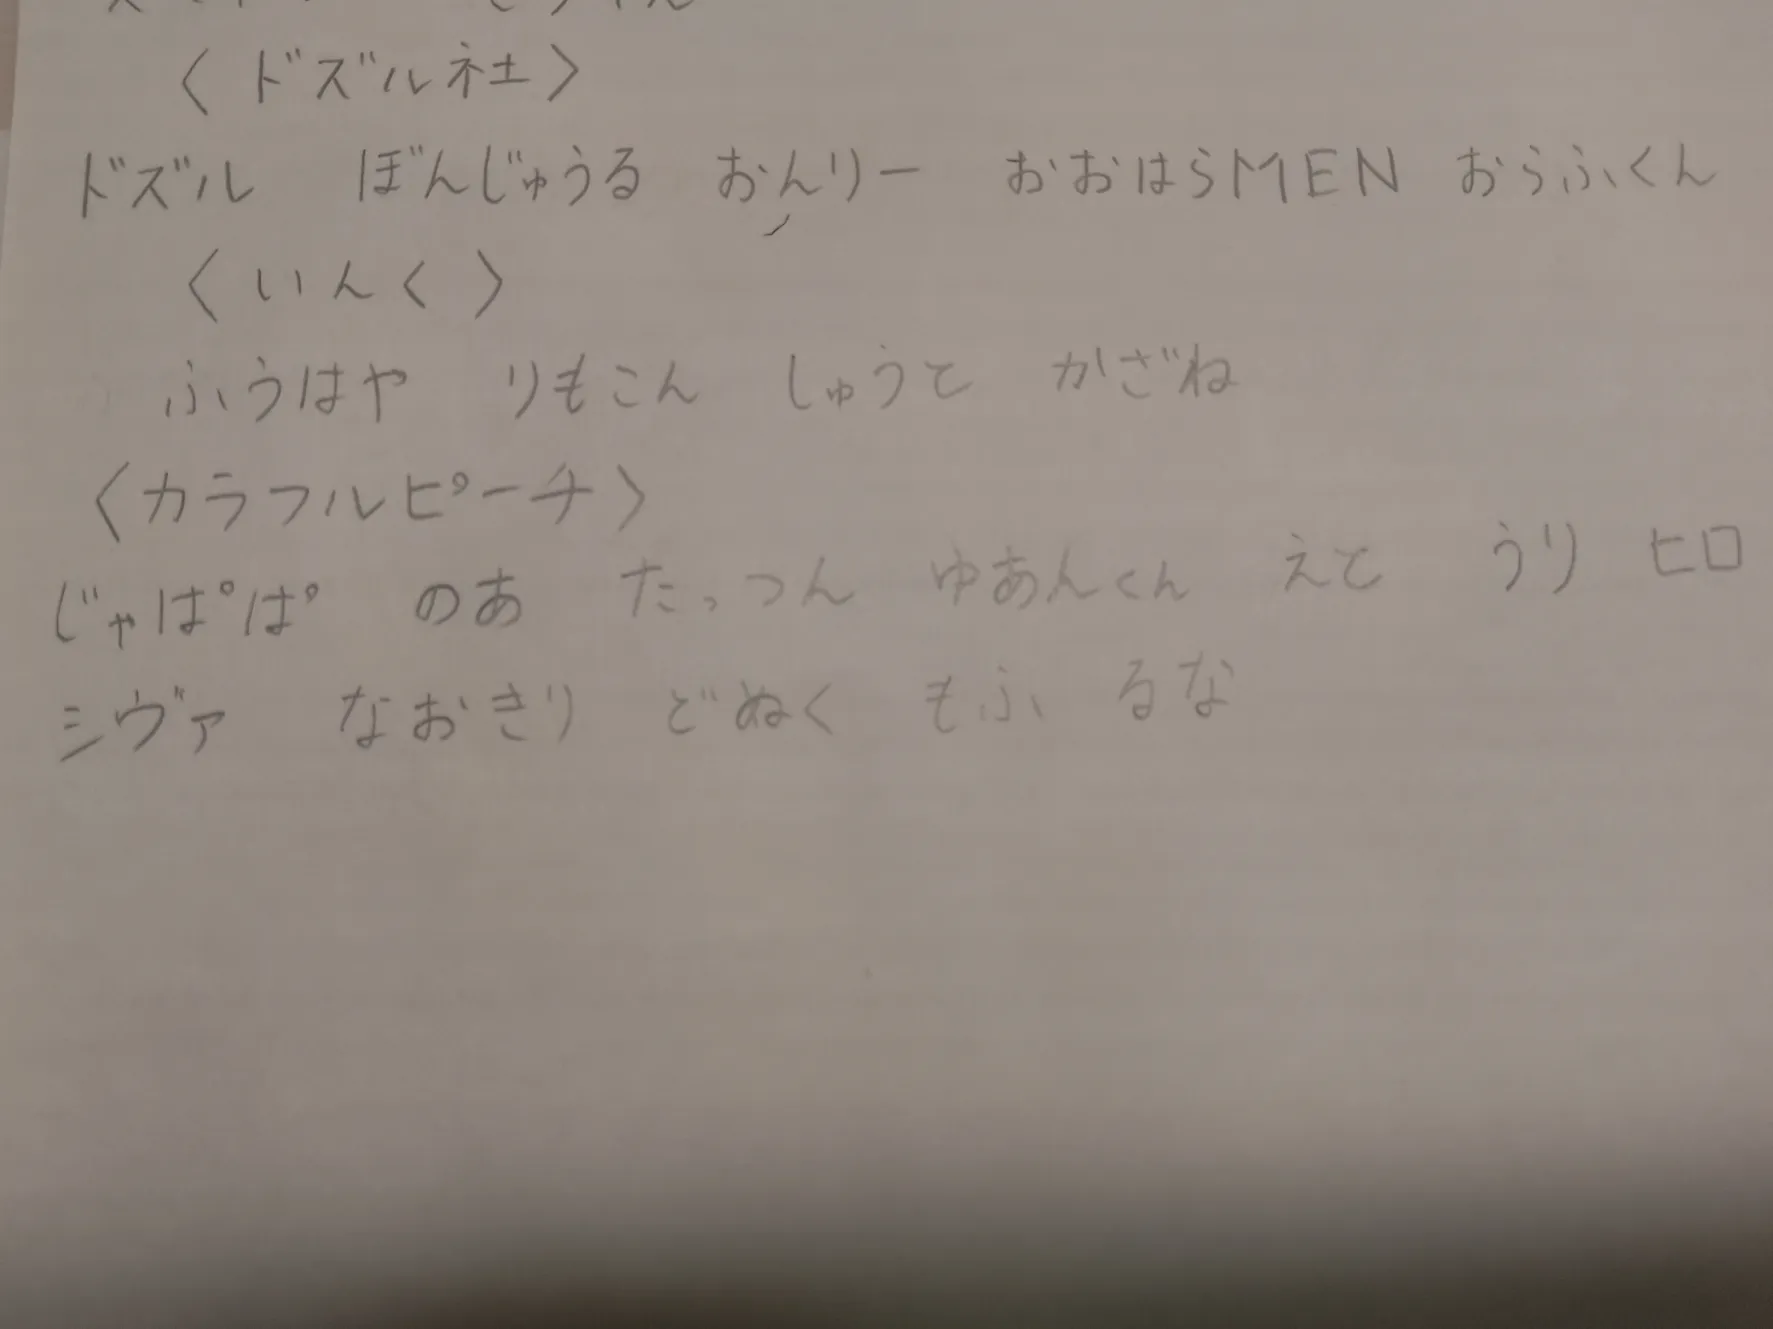 〈ドズル社〉
ドズル ぼんじゅうる おんりー おおはらMEN おらふくん
〈いんく〉
ふうはや りもこん しゅうと かざね
〈カラフルピーチ〉
じゃぱぱ のあ たっつん ゆあんくん えと うり ヒロ
シヴァ なおきり どぬく もふ るな